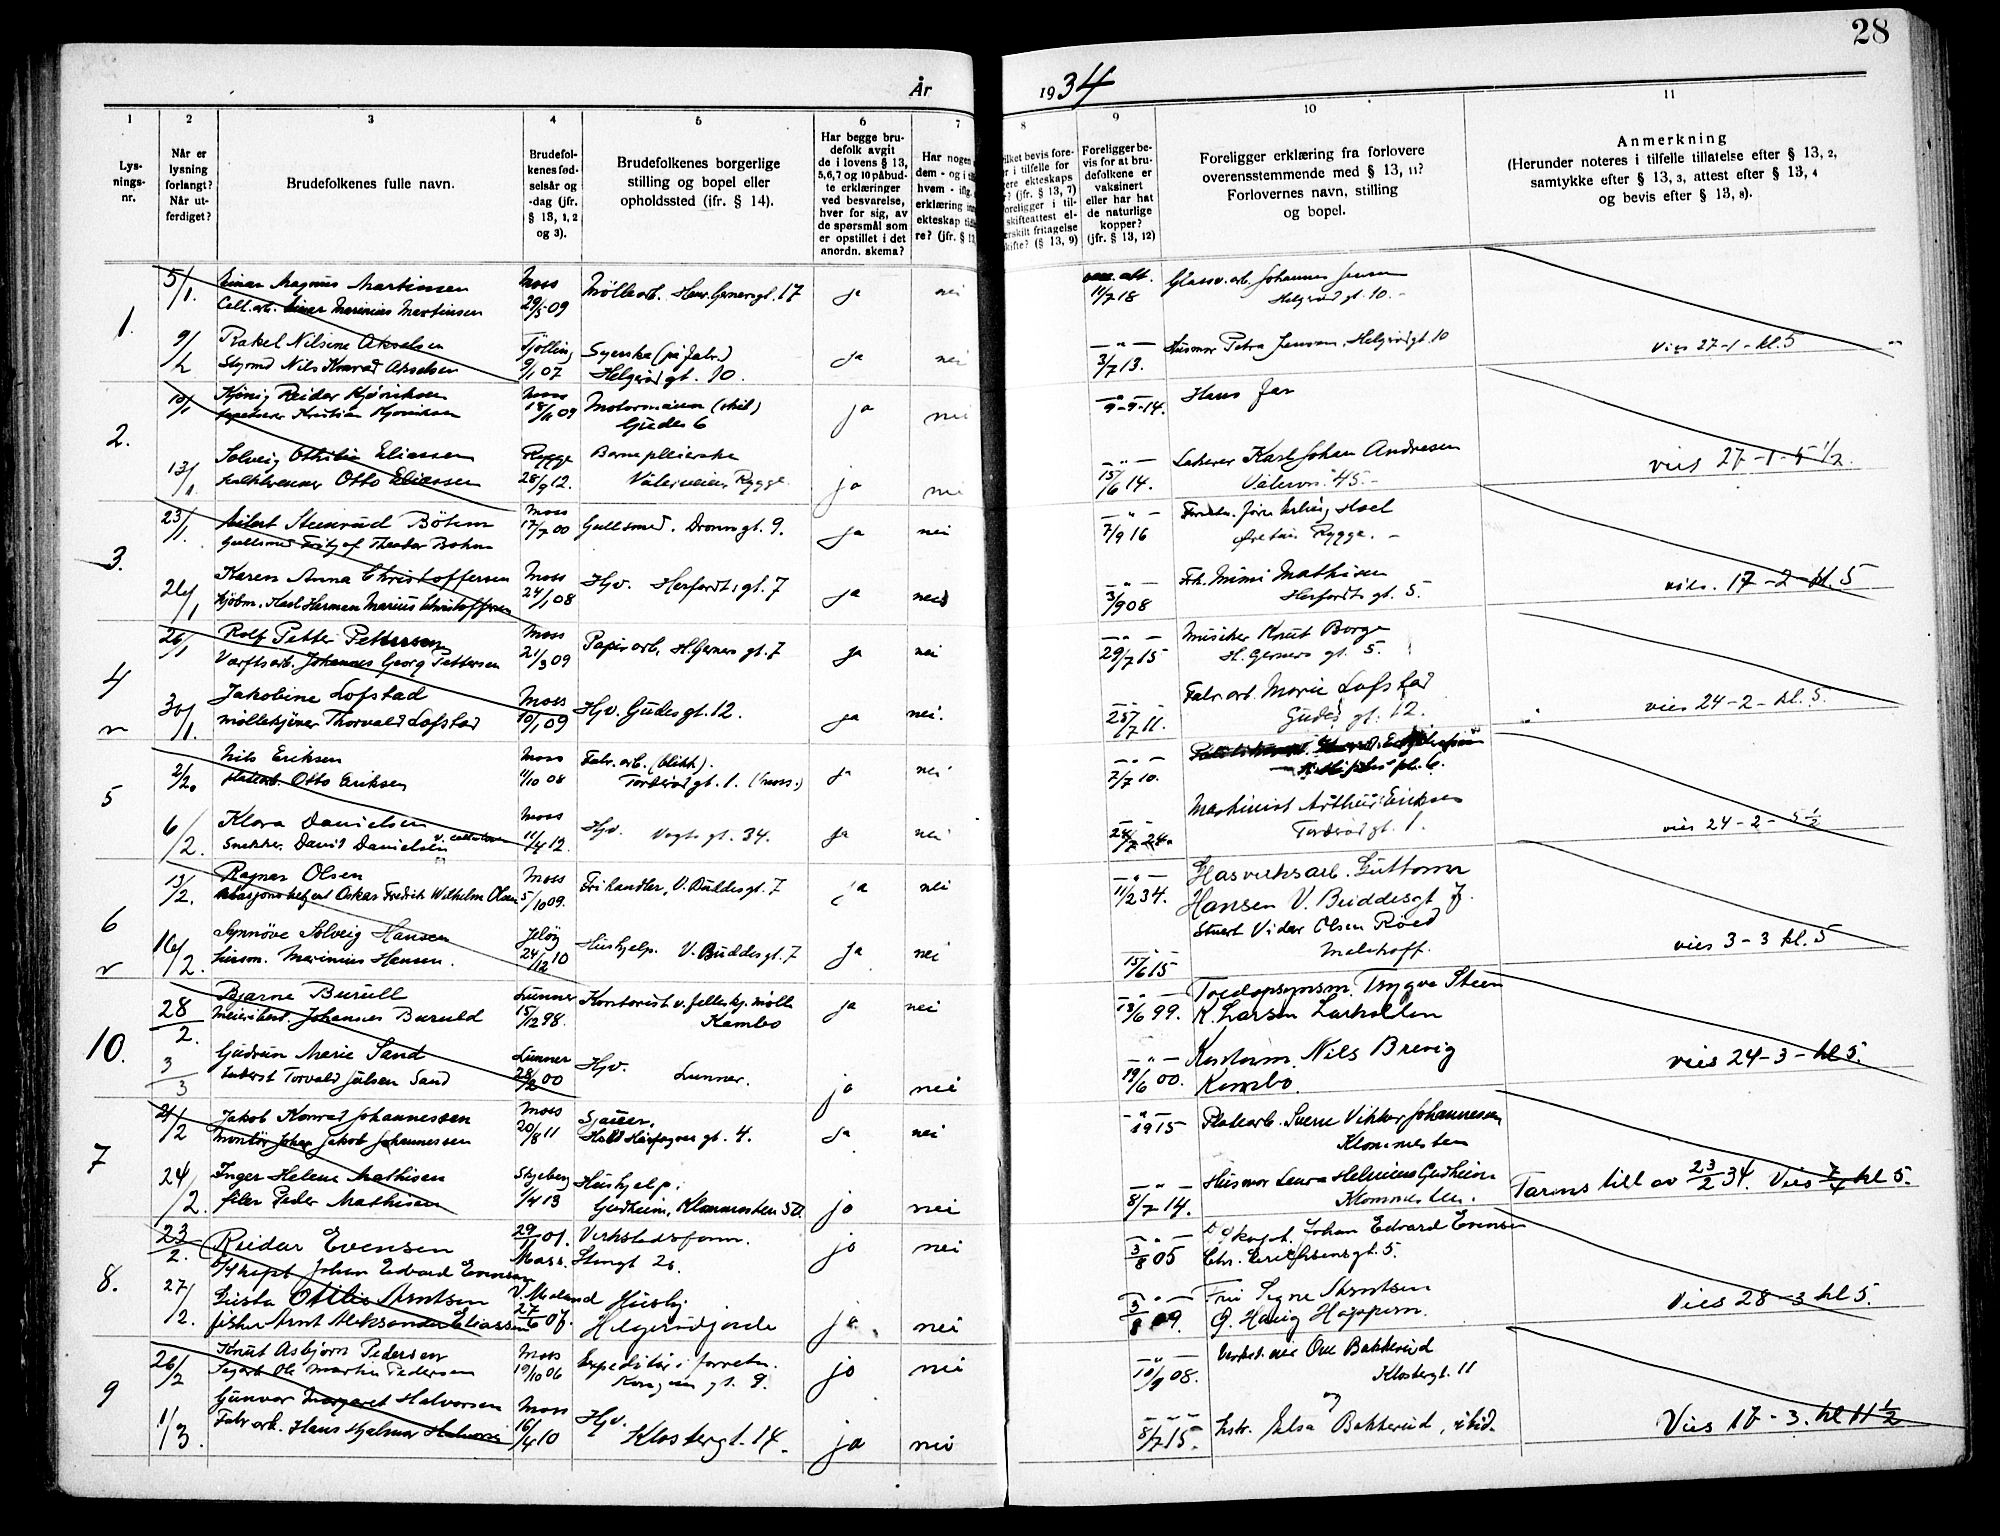 28
År 1934
1
Lys-
nings-
nr.
2
Når er
lysning
forlangt?
Når ut-
ferdiget?
3
Brudefolkenes fulle navn.
4
Brudefol-
kenes fød-
selsår og
-dag (jfr.
§ 13, 1, 2
og 3).
5
Brudefolkenes borgerlige
stilling og bopel eller
opholdssted (ifr. § 14).
6
Har begge bru-
defolk avgit
de i lovens § 13,
5,6,7 og 10 påbud-
te erklæringer
ved besvarelse,
hver for sig, av
de spørsmål som
er opstillet i det
anordn. skema?
7
Har nogen
dem - og i
hvem - ifg.
erklæring
ekteskap
re? (jfr. § 13,
8
ilket bevis fore-
r i tilfelle for
ere ekteskaps
? (jfr. § 13, 7)
oreligger i til-
skifteattest el-
rskilt fritagelse
kifte? (§ 13, 9)
9
Foreligger be-
vis for at bru-
defolkene er
vaksinert
eller har hat
de naturlige
kopper?
(jfr. § 13, 12)
10
Foreligger erklæring fra forlovere
overensstemmende med § 13, 11?
Forlovernes navn, stilling
og bopel.
11
Anmerkning
(Herunder noteres i tilfelle tillatelse efter § 13, 2,
samtykke efter § 13, 3, attest efter § 13, 4
og bevis efter § 13, 8).
1.
5/1. Einar Magnus Martinsen Moss Møllearb. Henr. Gernersgt. 17 ja nei vac. att. Glassv. arb. Johannes Jensen
Cell. arb. Einar Marinius Martinsen 29/5 09 11/7 18 Helgerødgt. 10.
9/1 Rakel Nilsine Akselsen Tjølling Syerske (på fabr.) ja nei Husmor Petra Jensen, Helgerødgt. 10 vies 27-1-kl. 5
Styrmd Nils Konrad Akselsen 9/1 07 Helgerødgt. 10. 3/7 13.
2.
10/1 Kjønig Reidar Kjøniksen Moss Motormann (skib) ja nei Hans far
Kristian Kjøniksen 18/11 09 Gudes 6 9-9-14.
13/1 Solveig Othilie Eliassen Rygge Barnepleierske ja nei Lakerer Karl Johan Andresen vies 27-1-5 1/2.
Otto Eliassen 28/9 12. Vålerveien Rygge 15/6 14. Vålervn. 45.
3.
23/1. Steinrud Böhm Moss Gullsmed. Dronnsgt. 9. ja nei
Gullsmed Fritjof Theodor Bohm 17/7 00 7/9 16 Rygge.
26/1 Karen Anna Christoffersen Moss Hjv. Herfordtsgt. 7 ja nei Frk. Mimi Mathisen vies. 17-2-kl. 5
Kjøbm. Karl Herman Marius Christoffersen 24/1 08 3/9 08 Herfordts gt. 5.
4
26/1 Rolf Petter Pettersen Moss Papirarb. H. Gerners gt. 7 ja nei Musiker Knut Borge
Værftsarb. Johannes Georg Pettersen 21/3 09 29/7 15 H. Gerners gt. 5.
30/1. Jakobine Lofstad Moss Hjv. Gudesgt. 12. ja nei. Fabr. arb. Marie Lofstad vies 24-2-kl. 5.
Møllekjører Thorvald Lofstad 10/1 09 25/7 11. Gudes gt. 12.
5
2/2. Nils Eriksen Moss Fabr. arb. (blikk). ja nei
Otto Eriksen 11/10 08 Torderødgt. 1. (Moss.) 7/7 10.
6/2. Klara Danielsen Moss Hjv. Vogts gt. 34. ja nei Maskinist Arthur Eriksen vies 24-2-5 1/2
Snekker David Danielsen 11/4 12. Torderødgt. 1.
6
13/2. Ragnar Olsen Moss Frihandler, V. Buddesgt. 7 ja nei Gasverksarb. Guttorm
Oskar Fredrik Wilhelm Olsen 5/10 09. 11/2 34. Hansen V. Buddesgt 7.
16/2. Synnøve Solveig Hansen Jeløy Hushjelp. V. Buddesgt. 7 ja nei Stuert Vidar Olsen Röed vies 3-3 kl. 5
Marinius Hansen. 24/12 10 15/6 15 Melahoff.
10.
28/2. Bjarne Burull Lunner Kontorist v. felleskj. mölle ja nei Toldopsynsm. Trygve Steen
Johannes Buruld 15/12 98. Kambo 13/6 99. K. Larsen Larkollen
3/3 Gudrun Marie Sand Lunner Hjv. ja nei Kontorm. Nils Brevig vies 24-3-kl 5.
Torvald Julsen Sand 28/2 00 Lunner. 19/6 00. Kambo.
7
21/2 Jakob Konrad Johannessen Moss Sjauer, ja nei Platearb. Sverre Viktor Johannessen
Montør Johan Jakob Johannessen 20/8 11 gt. 4. 1915 Klommesten
24/2. Inger Helene Mathisen Skjeberg Hushjelp. jo nei Husmor Laura Helmine Gudheim Tarens till av 23/2 34. Vies 7/4 kl 5.
filer Peder Mathisen 1/4 13 Gudheim, Klommesten 8/7 14. Klommesten.
8.
23/2. Reidar Evensen 29/11 01. Verkstedsform. jo nei Johan Edvard Evensen
Johan Edvard Evensen Moss. Storgt 26. 3/8 05 Chr. Erichsensgt. 5.
27/2. Gusta Otilie Arntsen V. Moland Husbj. ja. nei Fru Signe Arntsen Vies 28-3 kl 5.
fisker Arnt Aleksander Eliassen 27/6 07. Helgerødfjorde 3/8 09.
9
26/2 Knut Asbjørn Pedersen Moss Expeditør i forretn. jo nei Ove Bakkerud
Ole Martin Pedersen 19/10 06 Kongens gt. 9. 10/9 08. Klostergt. 11
og
1/3. Gunvor Margaret Halvorsen Moss Hjv. ja nei Elsa Bakkerud, ibid. Vies 17-3. kl 11 1/2
Fabr. ark. Hans Hjalmar Halvorsen 16/4 10 Klostergt. 14. 8/7 15.